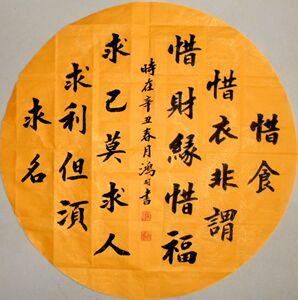 惜食
惜衣非謂
惜財緣惜福
求名
求利但須
求己莫求人
時在辛丑春月鴻書